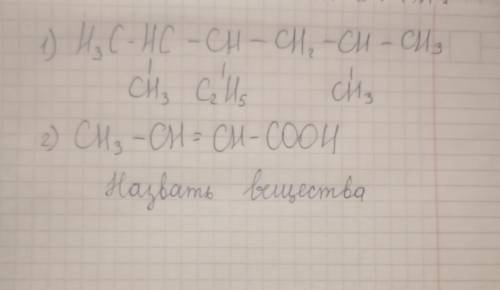 1) H₃C - HC - CH - CH₂ - CH - CH₃
CH₃ C₂H₅ CH₃
2) CH₃ - CH = CH - COOH
Назвать вещества